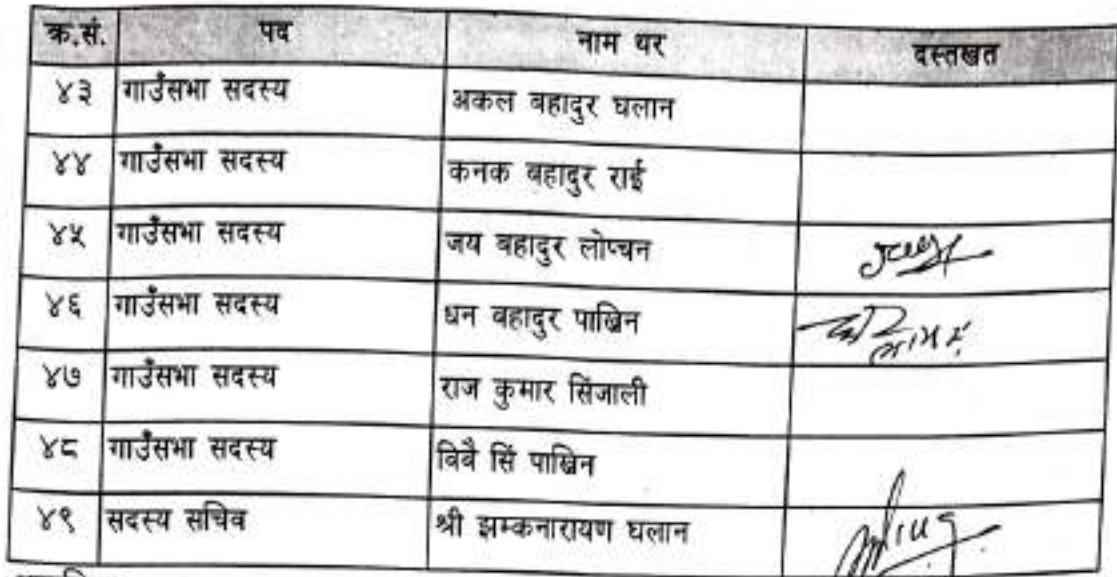 क्र.सं. पद नाम थर दस्तखत
४३ गाउँसभा सदस्य अकल बहादुर घलान
४४ गाउँसभा सदस्य कनक बहादुर राई
४५ गाउँसभा सदस्य जय बहादुर लोप्चन
४६ गाउँसभा सदस्य धन बहादुर पाख्रिन
४७ गाउँसभा सदस्य राज कुमार सिंजाली
४८ गाउँसभा सदस्य विबै सिं पाख्रिन
४९ सदस्य सचिव श्री झम्कनारायण घलान